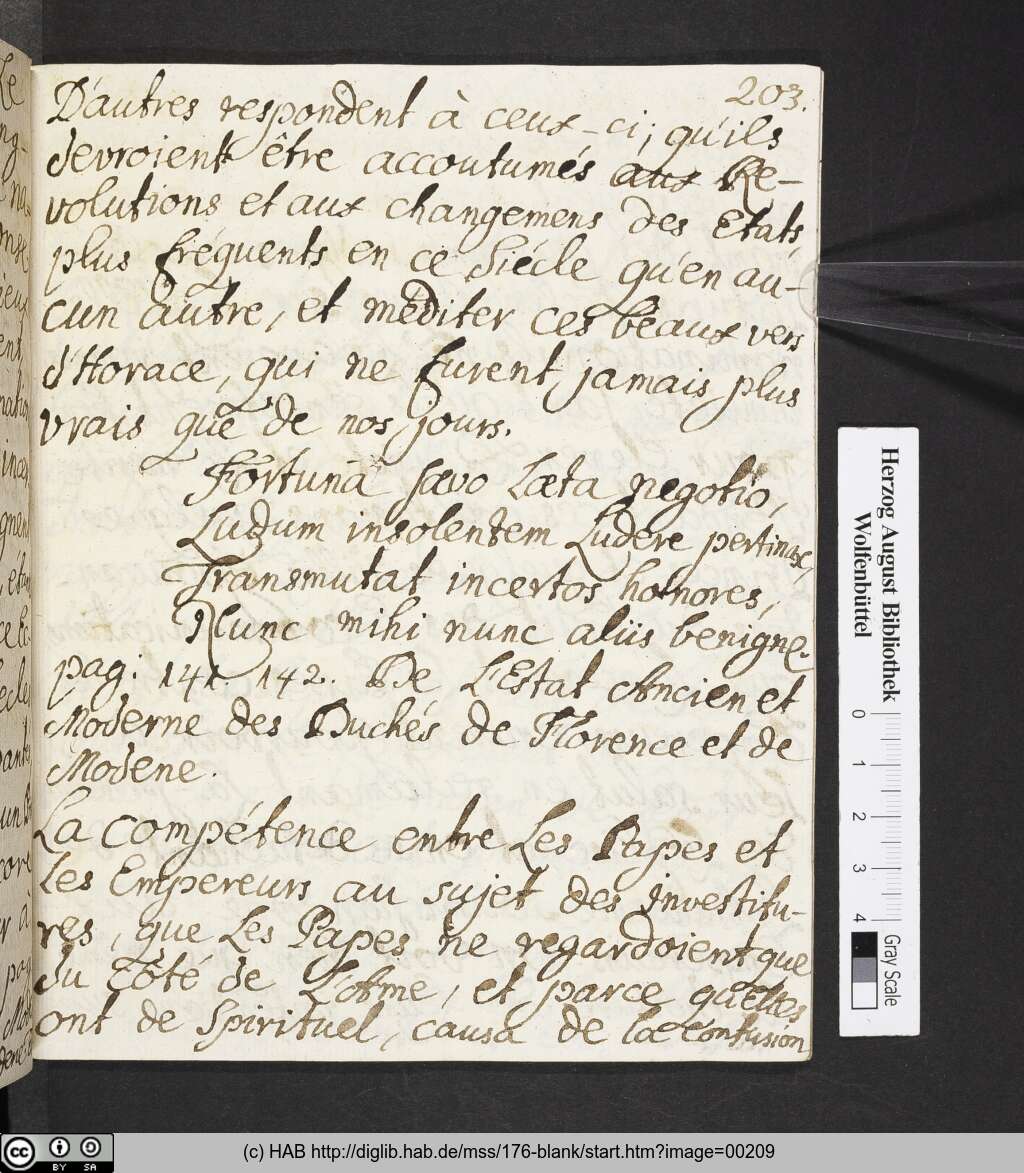 203.
D'autres respondent à ceux-ci; qu'ils
devroient être accoutumés aux Re-
volutions et aux changemens des Etats
plus fréquents en ce Siécle qu'en au-
cun autre, et mediter ces beaux vers
d'Horace, qui ne furent jamais plus
vrais que de nos jours.
Fortuna sævo Læta negotio,
Ludum insolentem Ludere pertinax,
Transmutat incertos honores,
Nunc mihi nunc aliis benigne.
pag: 141. 142. De L'Estat Ancien et
Moderne des Duchés de Florence et de
Modene.
La compétence entre Les Papes et
Les Empereurs au sujet des investitu-
res, que Les Papes ne regardoient que
du Côté de L'Ame, et parce qu'elles
ont de Spirituel, causa de la confusion
Le
Herzog August Bibliothek
Wolfenbüttel
0 1 2 3 4
Gray Scale
cc BY SA
(c) HAB http://diglib.hab.de/mss/176-blank/start.htm?image=00209